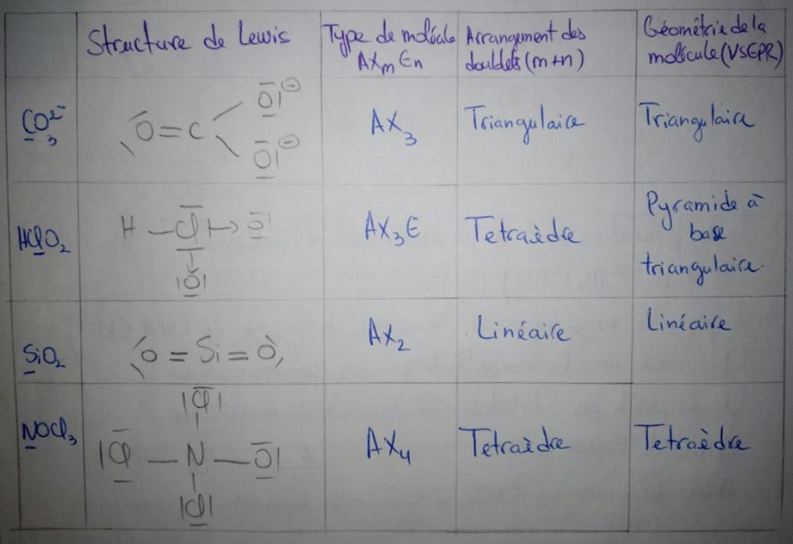 Structure de Lewis
Type de molécule
AXmEn
Arrangement des
doublets (m+n)
Géométrie de la
molécule (VSEPR)
CO₃²⁻
O=C
O⊖
O⊖
AX₃
Triangulaire
Triangulaire
HClO₂
H – Cl → O
↓
|O|
AX₃E
Tetraèdre
Pyramide à
base
triangulaire
SiO₂
O = Si = O
AX₂
Linéaire
Linéaire
NOCl₃
|Cl|
|Cl – N – O|
|Cl|
AX₄
Tetraèdre
Tetraèdre